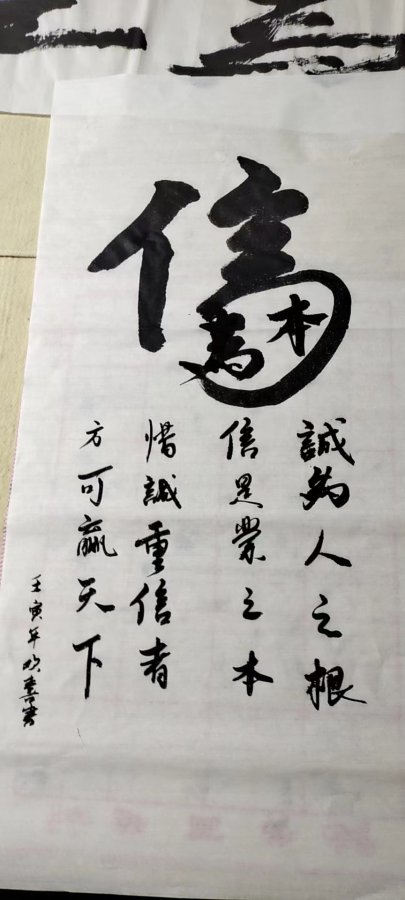 信
為本
誠為人之根
信是業之本
惜誠重信者
方可贏天下
壬寅年 書